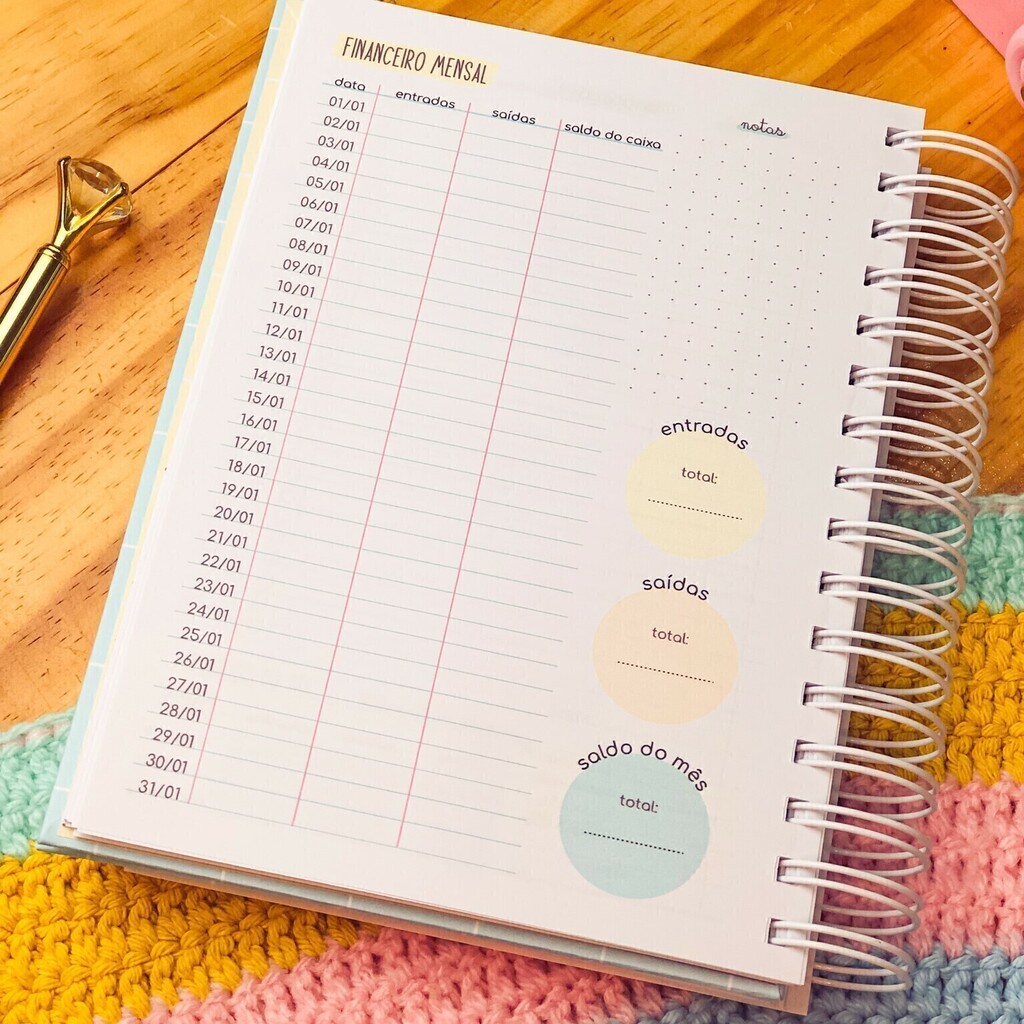 FINANCEIRO MENSAL
data entradas saídas saldo do caixa
01/01
02/01
03/01
04/01
05/01
06/01
07/01
08/01
09/01
10/01
11/01
12/01
13/01
14/01
15/01
16/01
17/01
18/01
19/01
20/01
21/01
22/01
23/01
24/01
25/01
26/01
27/01
28/01
29/01
30/01
31/01
notas
entradas
total:
saídas
total:
saldo do mês
total: